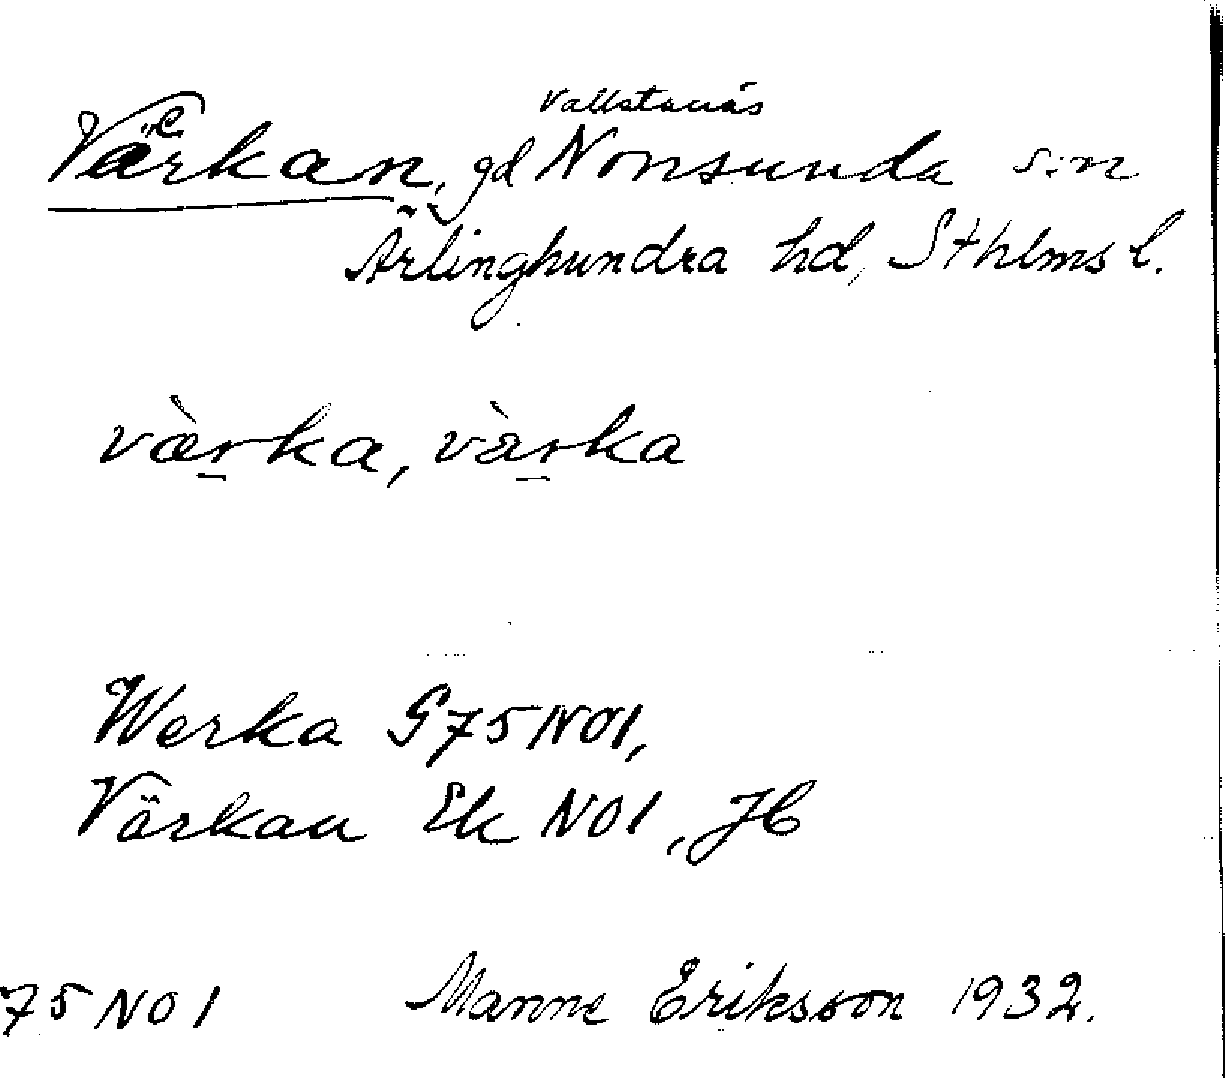 Vallstanäs
Värkan, gd Nonsunda s:n
Ärlinghundra hd, Sthlms l.
væ̀rka, vàrka
Werka G75NO1,
Värkan Ek NO1, JC
75 NO 1 Manne Eriksson 1932.